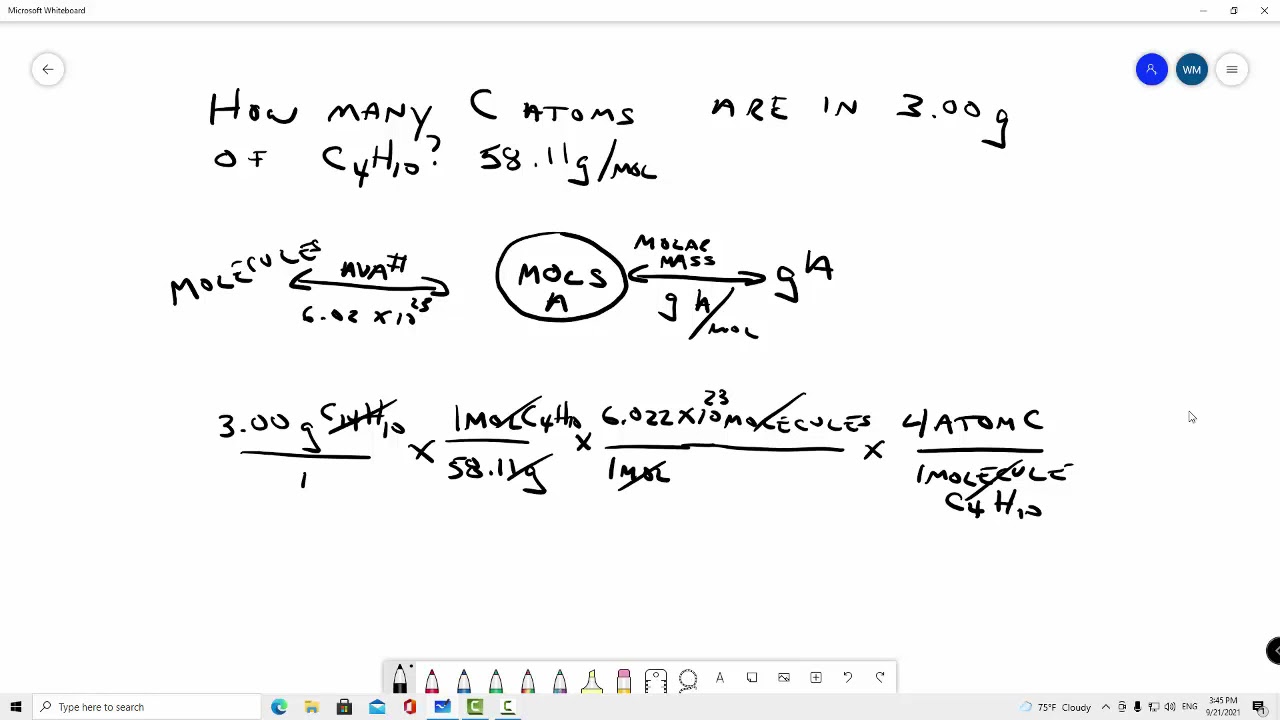 Microsoft Whiteboard
WM
HOW MANY C ATOMS ARE IN 3.00 g
OF C₄H₁₀? 58.11 g/MOL
MOLECULES AVA# 6.02 × 10²³
MOLS A
MOLAR MASS
g A/MOL
g A
3.00 g C₄H₁₀ × 1 MOL C₄H₁₀ × 6.022 × 10²³ MOLECULES × 4 ATOM C
1 58.11 g 1 MOL 1 MOLECULE
C₄H₁₀
A
Type here to search
75°F Cloudy
ENG
3:45 PM
9/21/2021
1